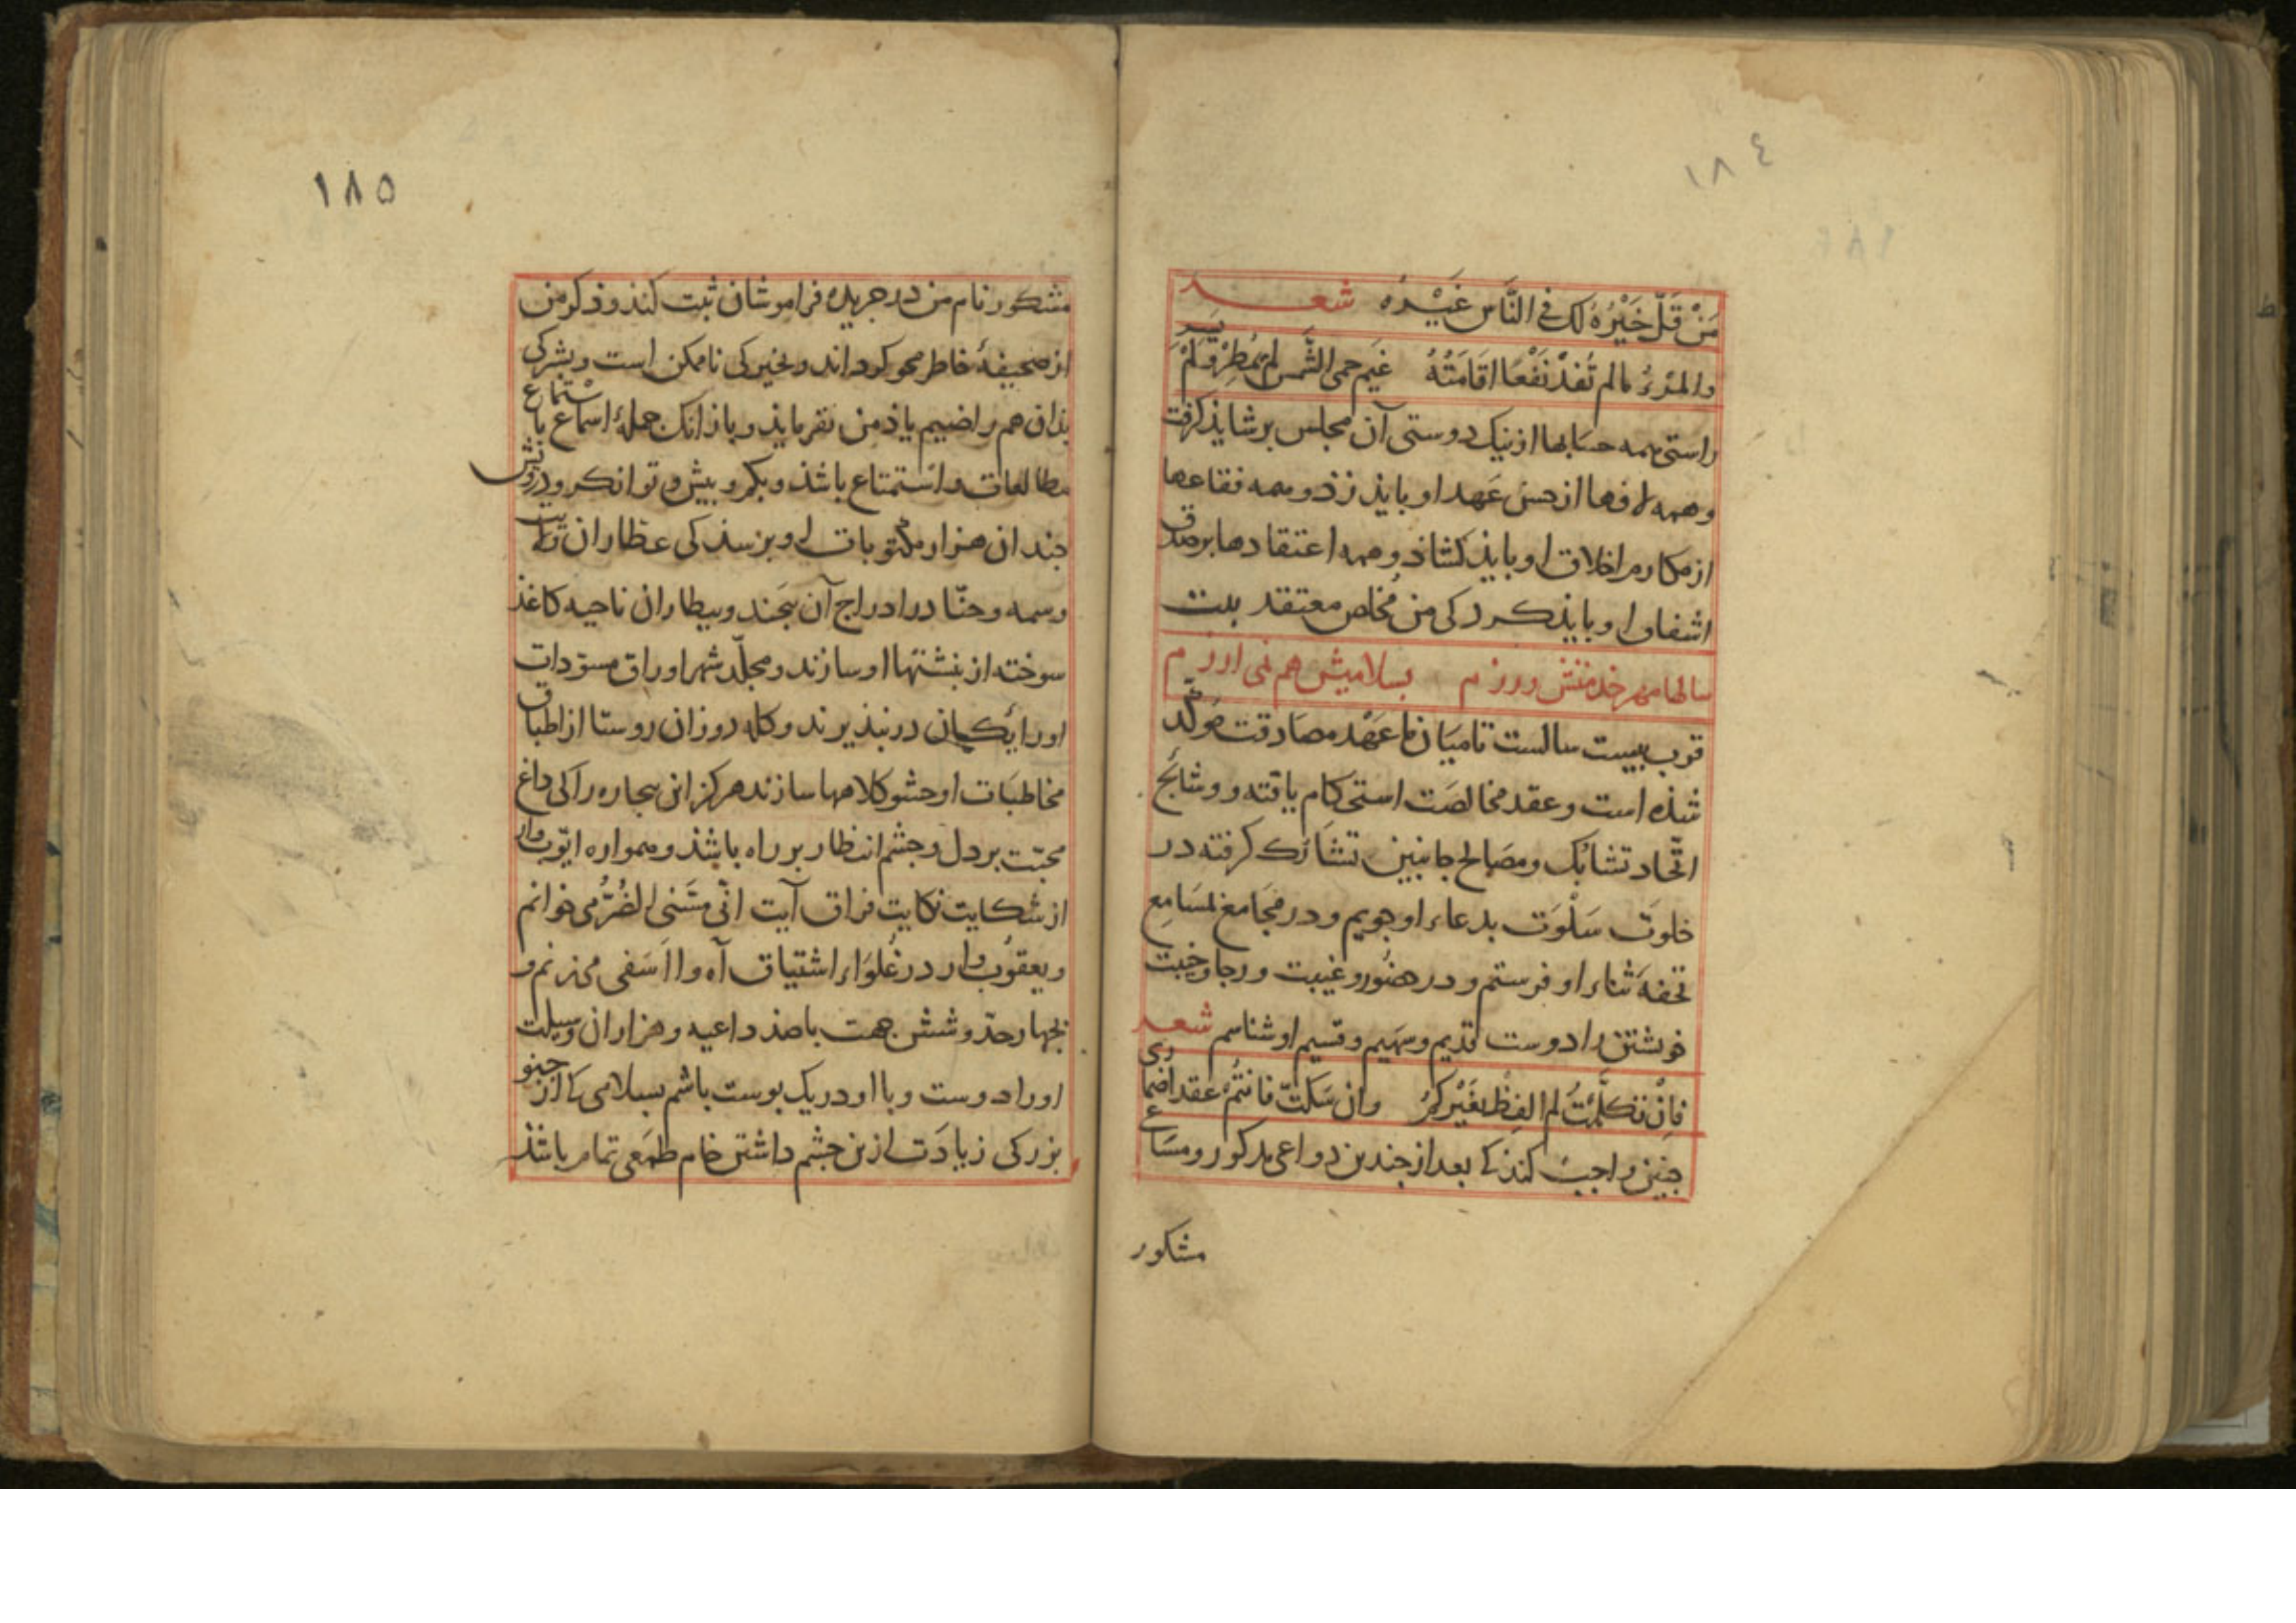 ١٨٤
مَنْ قَلَّ خَيْرُهُ لَك فِي النَّاسِ غَيْرُهُ شعر
والمَرْءُ مالم تُفِدْ نَفْعًا اقَامَتُهُ غَيم حمى الشَّمس لم يُمْطِرْ وَلَمْ يَسِر
راستی همه حسابها از نیک دوستی آن مجلس برشاید کرفت
وهمه لافها از حسن عَهد او بایذ زذ وهمه فقاعها
از مکارم اخلاق او بایذ کشاذ وهمه اعتقادها بر صدق
اشفاق او بایذ کرد کی من مُخلص معتقد بیت
سالها مهر خدمتش ورزم بسلامیش هم نمی ارزم
قرب بیست سالست تا میان ما عَهْد مصادقت مؤکّد
شذه است وعقد مخالصَت استحکام یافته ووشائج
اتّحاد تشابُک ومصَالح جانبین تشارُک کرفته در
خلوَت سَلْوَت بدعاء او جویم ودر مَجَامع لمسَامِع
تحفهٔ ثناء او فرستم ودر حضُور وغیبت ورجا وخیبت
خوشتن را دوست قدیم وسَهیم وقسیم او شناسم شعر
فاِنْ تَکَلَّمْتُ لم الفِظْ بغَیْرکُمُ وان سَکَتّ فانتُمْ عقد اضماری
چنین واجب کند کا بعد از چندین دواعی مذکور ومسَاعی
مشکور
١٨٥
مشکور نام من در جریدهٔ فراموشان ثبت کنذ وذکر من
از صحیفهٔ خاطر محو کرداند وبخیر کی ناممکن است وبشر کی
بذان هم راضییم یاذ من نفرمایذ وباز انک جملهٔ اسماع با استماع
مطالعات واستمتاع باشذ وبکم وبیش وتوانکر ودرویش
جندان هزار مکتوبات او برسذ کی عطاران ترتیب
وسمه وحنّا در ادراج آن بَیجند وبیطاران ناحیه کاغذ
سوخته از نبشتها او سازند ومجلّد شهر اوراق مسوّدات
اورا یکان در نبذیرند وکله دوزان روستا از اطباق
مخاطبَات او حشو کلاهها سازند هرکز این بیجاره را کی داغ
محبّت بر دل وجشم انتظار بر راه باشذ وهمواره ایّوب وار
از شکایت نکایت فراق آیت انّی مَسَّنی الضُرُّ می خوانم
ویعقوُب وار در غُلوَاء اشتیاق آه وا اَسَفی می زنم و
بجهار حدّ وشش جهت با صذ داعیه وهزاران وسیلت
اورا دوست وبا او در یک بوست باشم بسلامی کا از جنو
بزرکی زیادَت ازین جشم داشتن خام طمَعی تمام باشذ